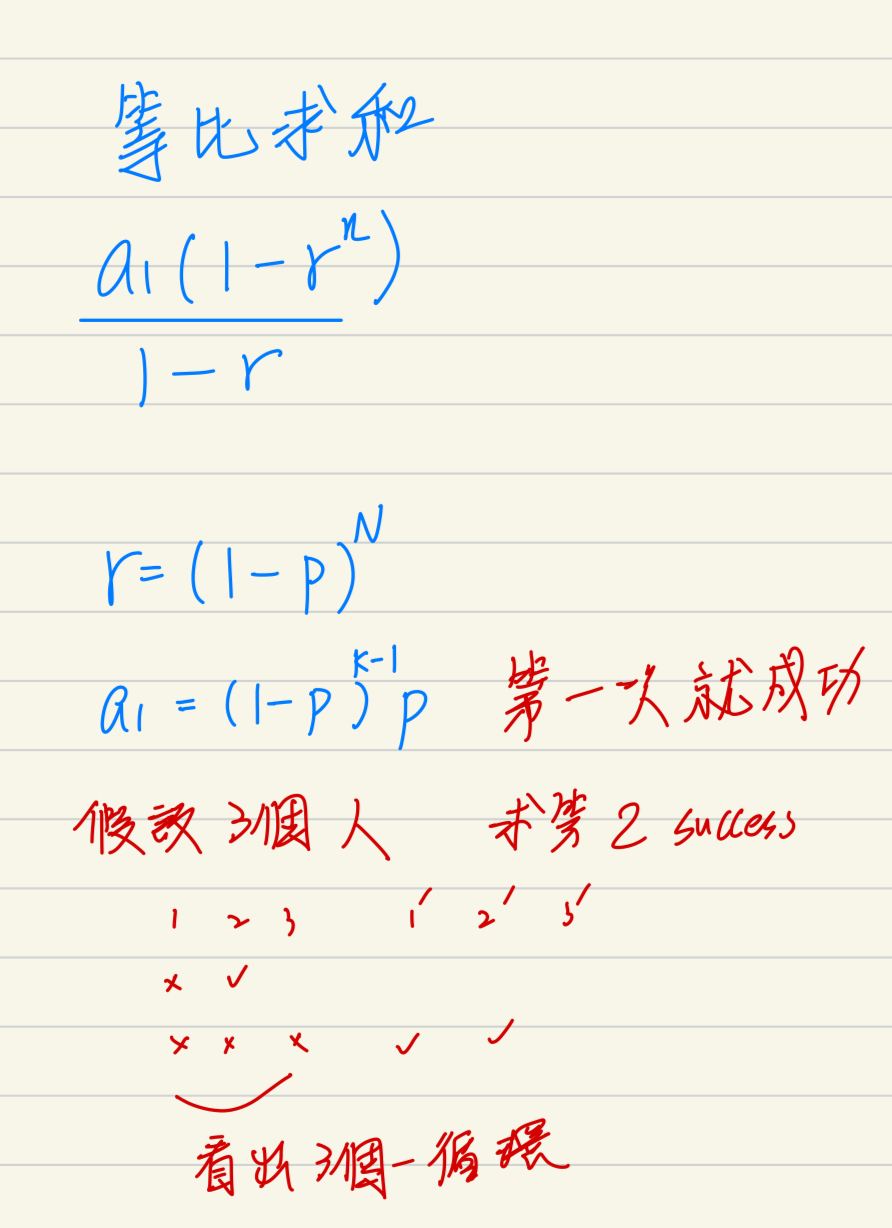 等比求和
a₁(1-rⁿ)
1-r
r=(1-p)^N
a₁=(1-p)^{k-1}p 第一次就成功
假設3個人 求第2 success
1 2 3 1′ 2′ 3′
× ✓
× × × ✓ ✓
看出3個一循環